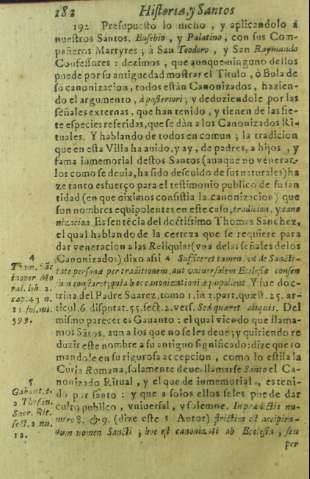 182 Historia, y Santos
192 Presupuesto lo dicho, y aplicandolo á
nuestros Santos, Eusebio, y Palatino, con sus Com-
pañeros Martyres; à San Teodoro, y San Raymundo
Confessores: dezimos, que aunque ninguno dellos
puede por su antiguedad mostrar el Titulo, ò Bula de
su canonizacion, todos están Canonizados, hazien-
do el argumento, à posteriori; y deduziendole por las
señales externas, que han tenido, y tienen de las sie-
te especies referidas, que se dàn a los Canonizados Ri-
tuales. Y hablando de todos en comun; la tradicion
que en esta Villa ha auido, y ay, de padres, a hijos, y
fama inmemorial destos Santos (aunque no venerar-
los como se deuia, ha sido descuido de sus naturales) ha-
ze tanto esfuerço para el testimonio publico de su san
tidad (en que diximos consistia la canonizacion) que
son nombres equipolentes en este caso, tradicion, y cano
nizacion. Es sentécia del doctissimo Thomas Sanchez,
el qual hablando de la certeza que se requiere para
dar veneracion a las Reliquias (vna de las señales de los
Canonizados) dixo assi 4 Sufficeret tamen, vt de Sancti-
tate persona per traditionem, aut vniuersalem Ecclesiæ consen
sum constaret; quia hæc canonizationi æquipollent. Y fue doc-
trina del Padre Suarez, tomo 1. in 3. part. quæst. 25. ar-
ticul. 6. disputat. 55. sect. 2. vers. Sed quæret aliquis. Del
mismo parecer es Gauanto: el qual viendo que llama-
mos Sãtos, aun a los que no se les deue; y quiriendo re
duzir este nombre a su antiguo significado: dize que to
mandole en su rigurosa acepcion, como lo estila la
Curia Romana, solamente deue llamarse Santo el Ca-
nonizado Ritual, y el que de inmemorial, es teni-
do por santo: y que a solos ellos se les puede dar
culto publico, vniuersal, y solemne.
4
Thom. Sãc
5
Gabant. t.
12.
per